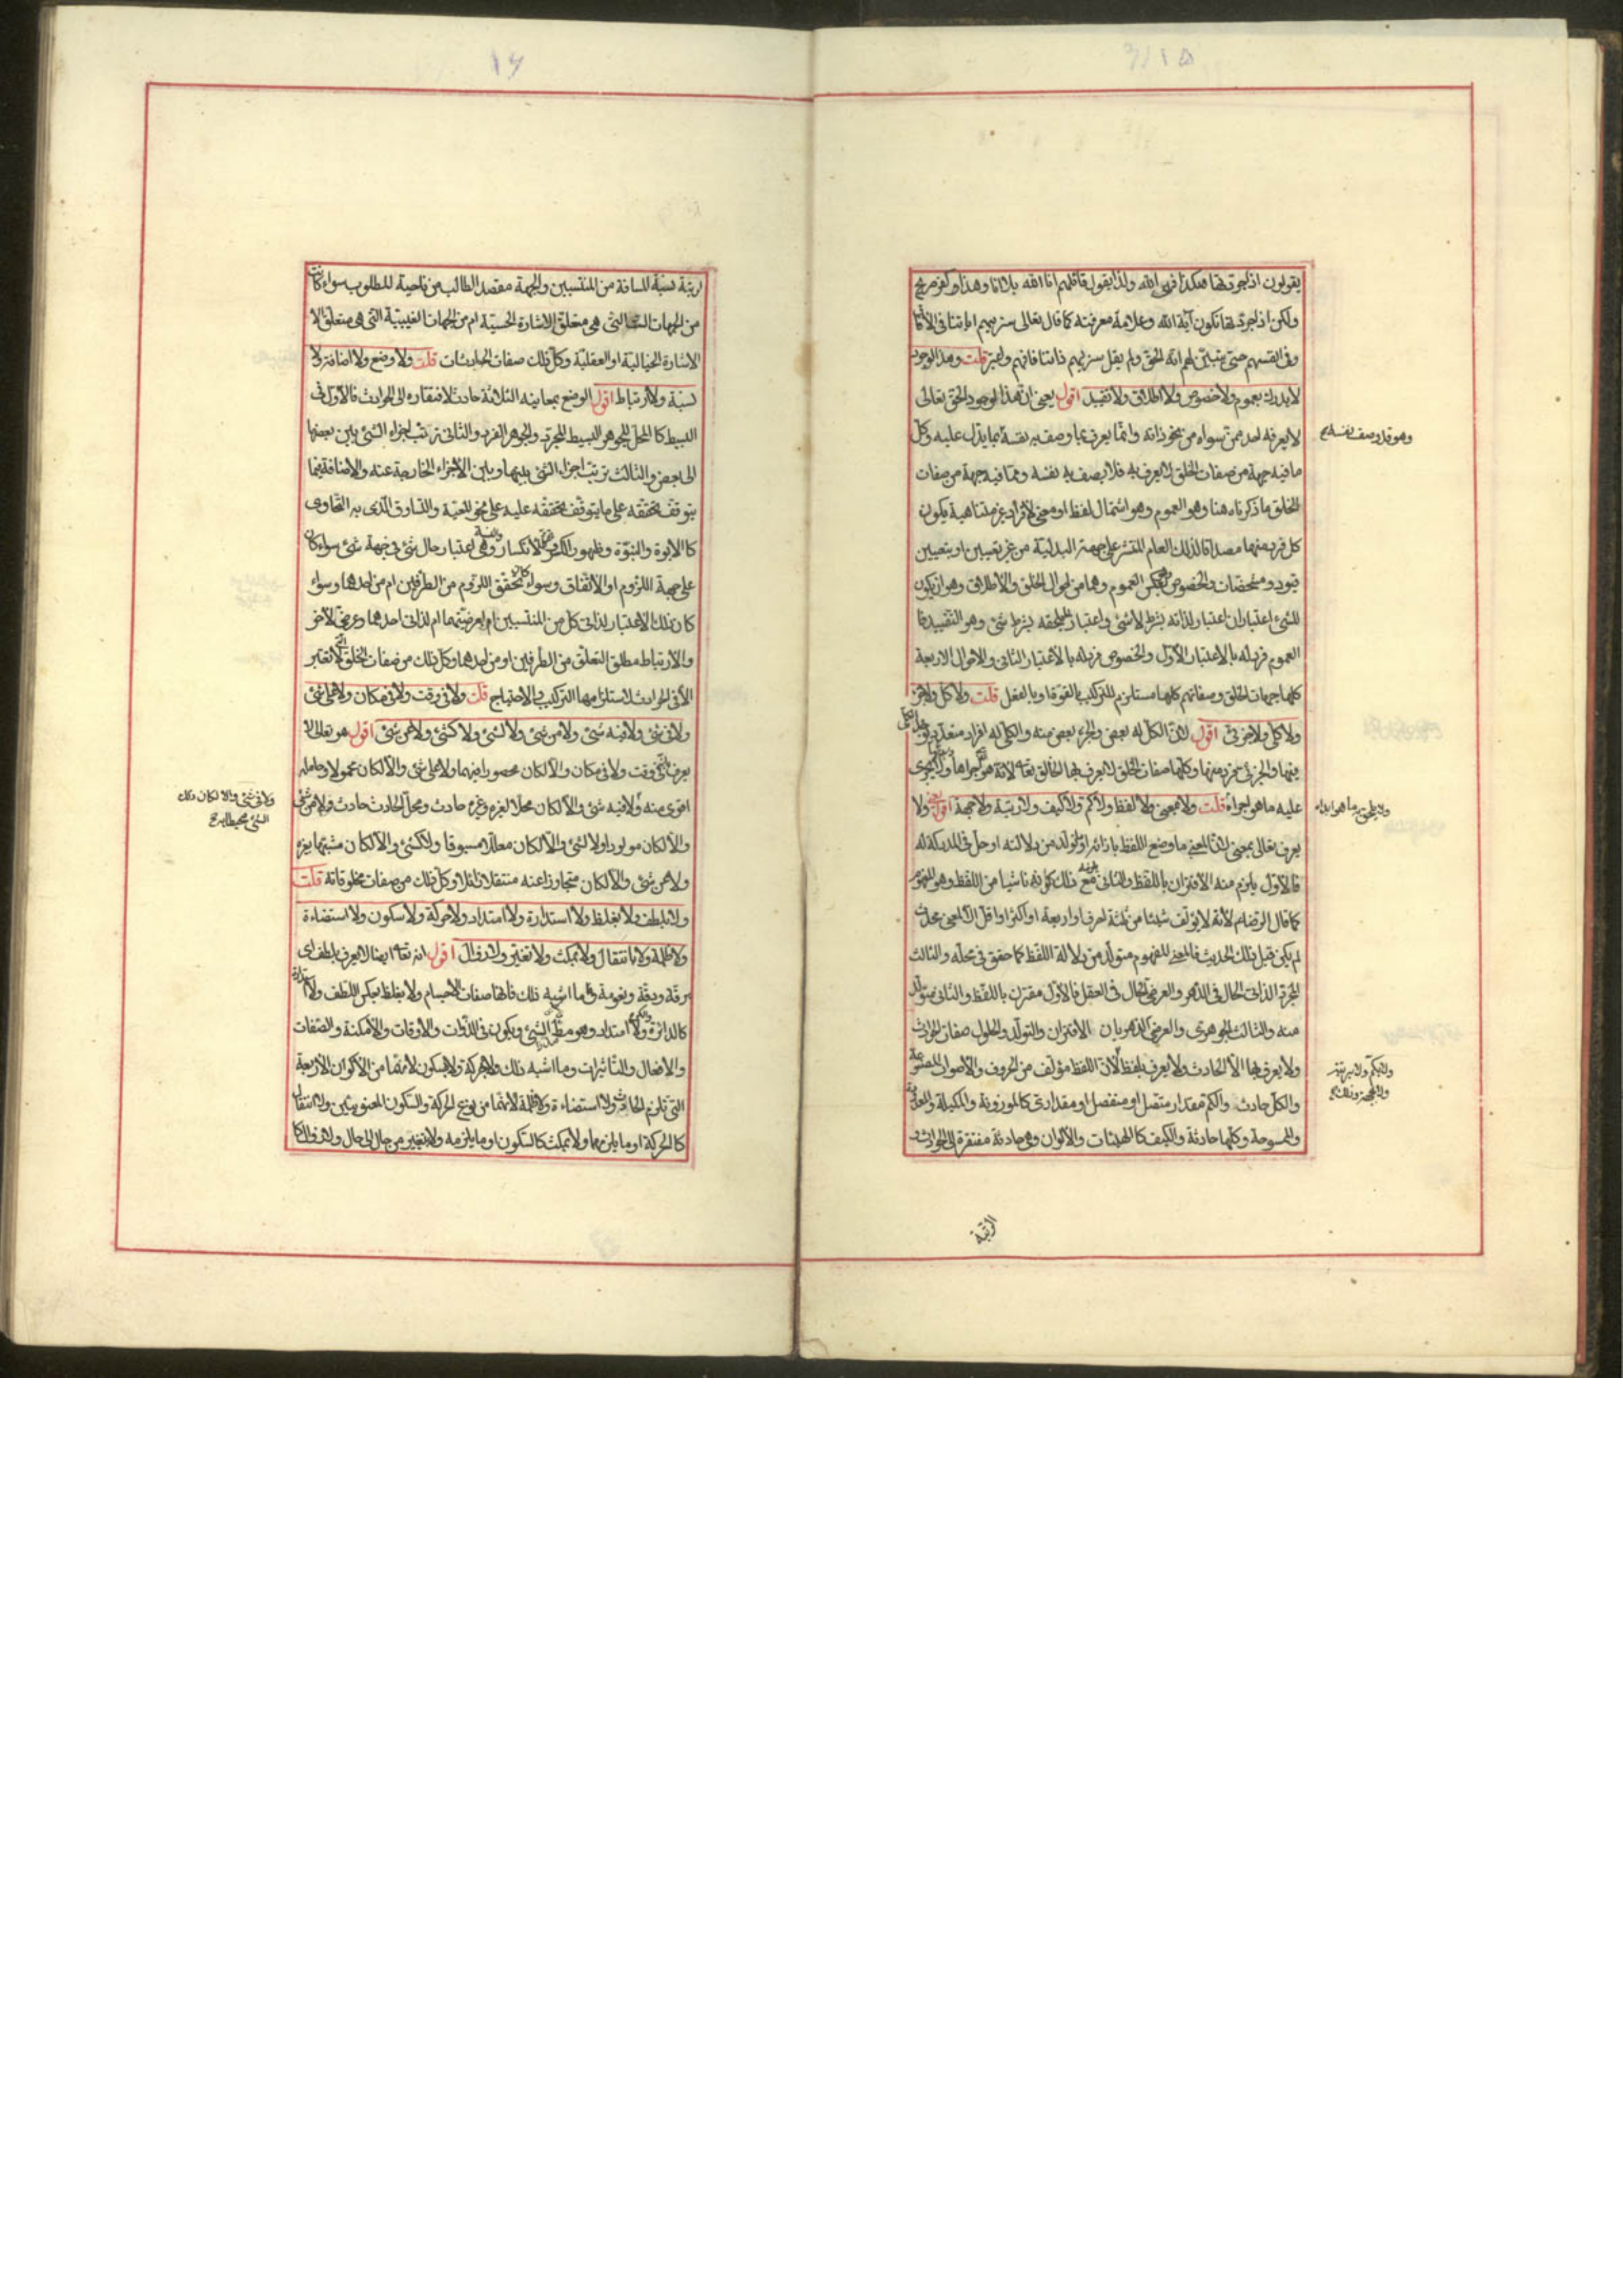 ١٥
يقولون اذا جردتها هكذا فهى الله ولذا يقول قائلهم انا الله بلا انا وهذا كفر صريح
ولكن اذا جردتها تكون آية الله وعلامة معرفته كما قال تعالى سنريهم اياتنا فى الآفاق
وفى انفسهم حتى يتبيّن لهم انّه الحق ولم يقل سنريهم ذاتنا فافهم قلت وهذا الوجود
لا يدرك بعموم ولا خصوص ولا اطلاق ولا تقييد اقول يعنى ان هذا الوجود الحق تعالى
لا يعرفه احد ممّن سواه من نحو ذاته وانّما يعرف بما وصف به نفسه مما يدل عليه وكل
وهو قد وصف نفسه
ما فيه جهة من صفات الخلق لا يعرف به فلا يصف به نفسه ومما فيه جهة من صفات
الخلق ما ذكرناه هنا وهو العموم وهو اشتمال لفظ او معنى لافراد غير متناهية يكون
كل فرد منهما مصداقا لذلك العام المنتشر على جهة البدلية من غير تعيين او بتعيين
قيود ومشخصات والخصوص بعكس العموم وهما من احوال الخلق والاطلاق وهو ان يكون
للشئ اعتباران اعتبار لذاته بشرط لا شئ واعتبار لما يلحقه بشرط شئ وهو التقييد فا
العموم فرد له بالاعتبار الاوّل والخصوص فرد له بالاعتبار الثانى والاحوال الاربعة
كلها جهات الخلق وصفاتهم كلها مستلزم للتركيب بالقوة او بالفعل قلت ولا كل ولا جزء
ولا كلى ولا جزئى اقول لانّ الكل له بعض والجزء بعض منه والكلى له افراد متعددة
منها والجزئى منها وكلها صفات الخلق لا يعرف بها الخالق تعالى لانه هو اجراها ولا يجرى
عليه ما هو اجراه قلت ولا بمعنى ولا لفظ ولا كم ولا كيف ولا رتبة ولا جهة اقول ولا
يعرف تعالى بمعنى لانّ المعنى ما وضع اللفظ بازائه او تولّد من دلالته او حلّ فى المدركة له
فالاوّل يلزم منه الاقتران باللفظ والثانى مع ذلك كونه ناشيا من اللفظ وهو المفهوم
كما قال الرضا م لانه لا يؤلف شيئا من ثلثة احرف او اربعة او اكثر او اقل الا لمعنى محدث
لم يكن قبل ذلك الحديث فالمعنى المفهوم متولّد من دلالة اللفظ كما حقق فى محله والثالث
المجرد الذاتى الحال فى الدهر والعرضى الحال فى العقل فالاوّل مقترن باللفظ والثانى متولّد
منه والثالث الجوهرى والعرضى الدهريان الاقتران والتولّد والحلول صفات الحوادث
ولا يعرف بها الا الحادث ولا يعرف بلفظ لانّ اللفظ مؤلف من الحروف والاصوات
والكل حادث والكم مقدار متصل او منفصل او مقدارى كالموزونة والمكيلة والمعدودة
والممسوحة وكلها حادثة والكيف كالهيئات والالوان وهى حادثة مفتقرة الى الحوادث و
الرتبة
١٦
رتبة نسبة المسافة من المنتسبين والجهة مقصد الطالب من ناحية المطلوب سواء كانت
من الجهات الست التى هى متعلق الاشارة الحسيّة ام من الجهات الغيبية التى هى متعلق الا
الاشارة الخيالية او العقلية وكل ذلك صفات الحادثات قلت ولا وضع ولا اضافة ولا
نسبة ولا ارتباط اقول الوضع بمعانيه الثلاثة حادث لافتقاره الى الحوادث فالاوّل فى
البسيط كالمحل للجوهر البسيط المجرد والجوهر الفرد والثانى ترتب اجزاء الشئ بين بعضها
الى بعض والثالث ترتب اجزاء الشئ بينها وبين الاجزاء الخارجة عنه والاضافة فيما
يتوقف تحققه على ما يتوقف تحققه عليه على نحو المعيّة والتساوق الذى به التحاوى
كالابوة والبنوّة وظهور الكسر والانكسار والنسبة وهى اعتبار حال شئ فى جهة شئ سواء كان
على جهة اللزوم او الاتفاق وسواء كان تحقق اللزوم من الطرفين ام من احدهما وسواء
كان ذلك الاعتبار لذاتى كل من المنتسبين ام لعرضيتهما ام لذاتى احدهما وعرضى الآخر
والارتباط مطلق التعلق من الطرفين او من احدهما وكل ذلك من صفات الخلق لا تعتبر
الا فى الحوادث لاستلزامها التركيب والاحتياج قلت ولا فى وقت ولا فى مكان ولا على شئ
ولا فى شئ ولا فيه شئ ولا من شئ ولا لشئ ولا كشئ ولا عن شئ اقول هو تعالى لا
يعرف فى وقت ولا فى مكان والا لكان محصورا فيهما ولا على شئ والا لكان محمولا وحامله
اقوى منه ولا فيه شئ والا لكان محلا لغيره وغيره حادث ومحل الحادث حادث ولا من شئ
ولا فى شئ والا لكان ذلك
الشئ محيطا به
والا لكان مولودا ولا لشئ والا لكان معللا مسبوقا ولا كشئ والا لكان مشبها بغيره
ولا عن شئ والا لكان متجاوزا عنه منتقلا وكل ذلك من صفات مخلوقاته قلت
ولا بلطف ولا بغلظ ولا استدارة ولا امتداد ولا حركة ولا سكون ولا استضاءة
ولا ظلمة ولا بانتقال ولا بمكث ولا تغيّر ولا زوال اقول انه تعالى ايضا لا يعرف بلطف اى
برقة ودقة ونعومة وما اشبه ذلك فانها صفات الاجسام ولا بغلظ بعكس اللطف ولا استدارة
كالدائرة والكرة ولا امتداد وهو مط الشئ ويكون فى الذوات والاوقات والامكنة والصفات
والافعال والتأثيرات وما اشبه ذلك ولا بحركة ولا بسكون لانهما من الاكوان الاربعة
التى تلزم الحادث ولا استضاءة ولا ظلمة لانهما من نوع الحركة والسكون المعنويين ولا انتقال
كالحركة او ما يلزمها ولا بمكث كالسكون او ما يلزمه ولا بتغيّر من حال الى حال ولا زوال كا